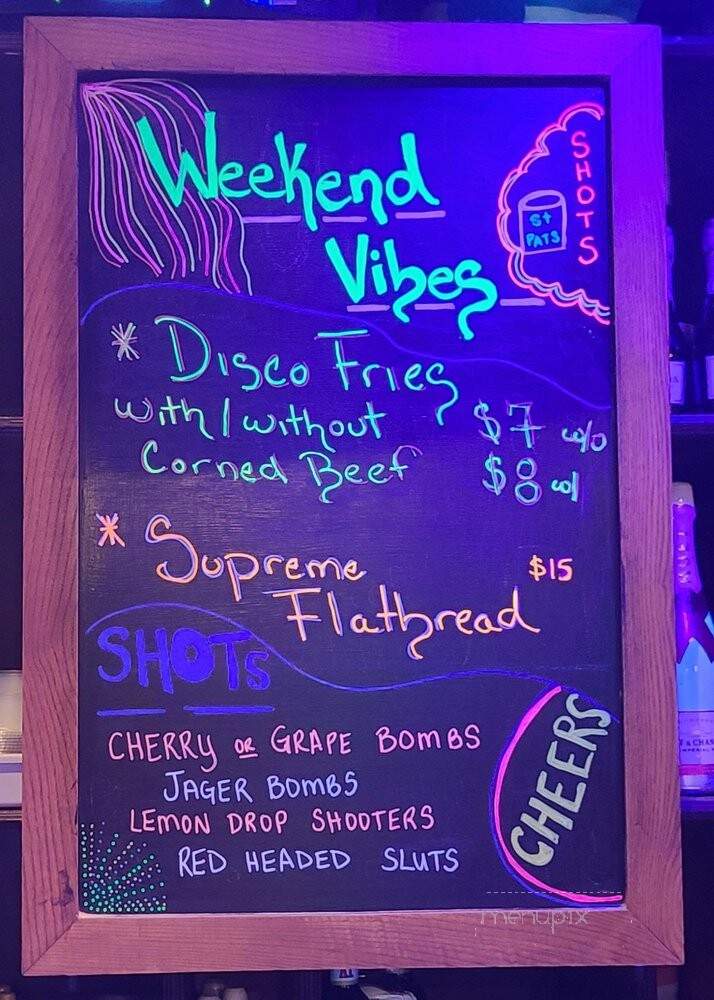 Weekend
Vibes
SHOTS
St
PATS
* Disco Fries
with/without $7 w/o
Corned Beef $8 w/
* Supreme $15
Flatbread
SHOTS
CHERRY OR GRAPE BOMBS
JAGER BOMBS
LEMON DROP SHOOTERS
RED HEADED SLUTS
CHEERS
menupix